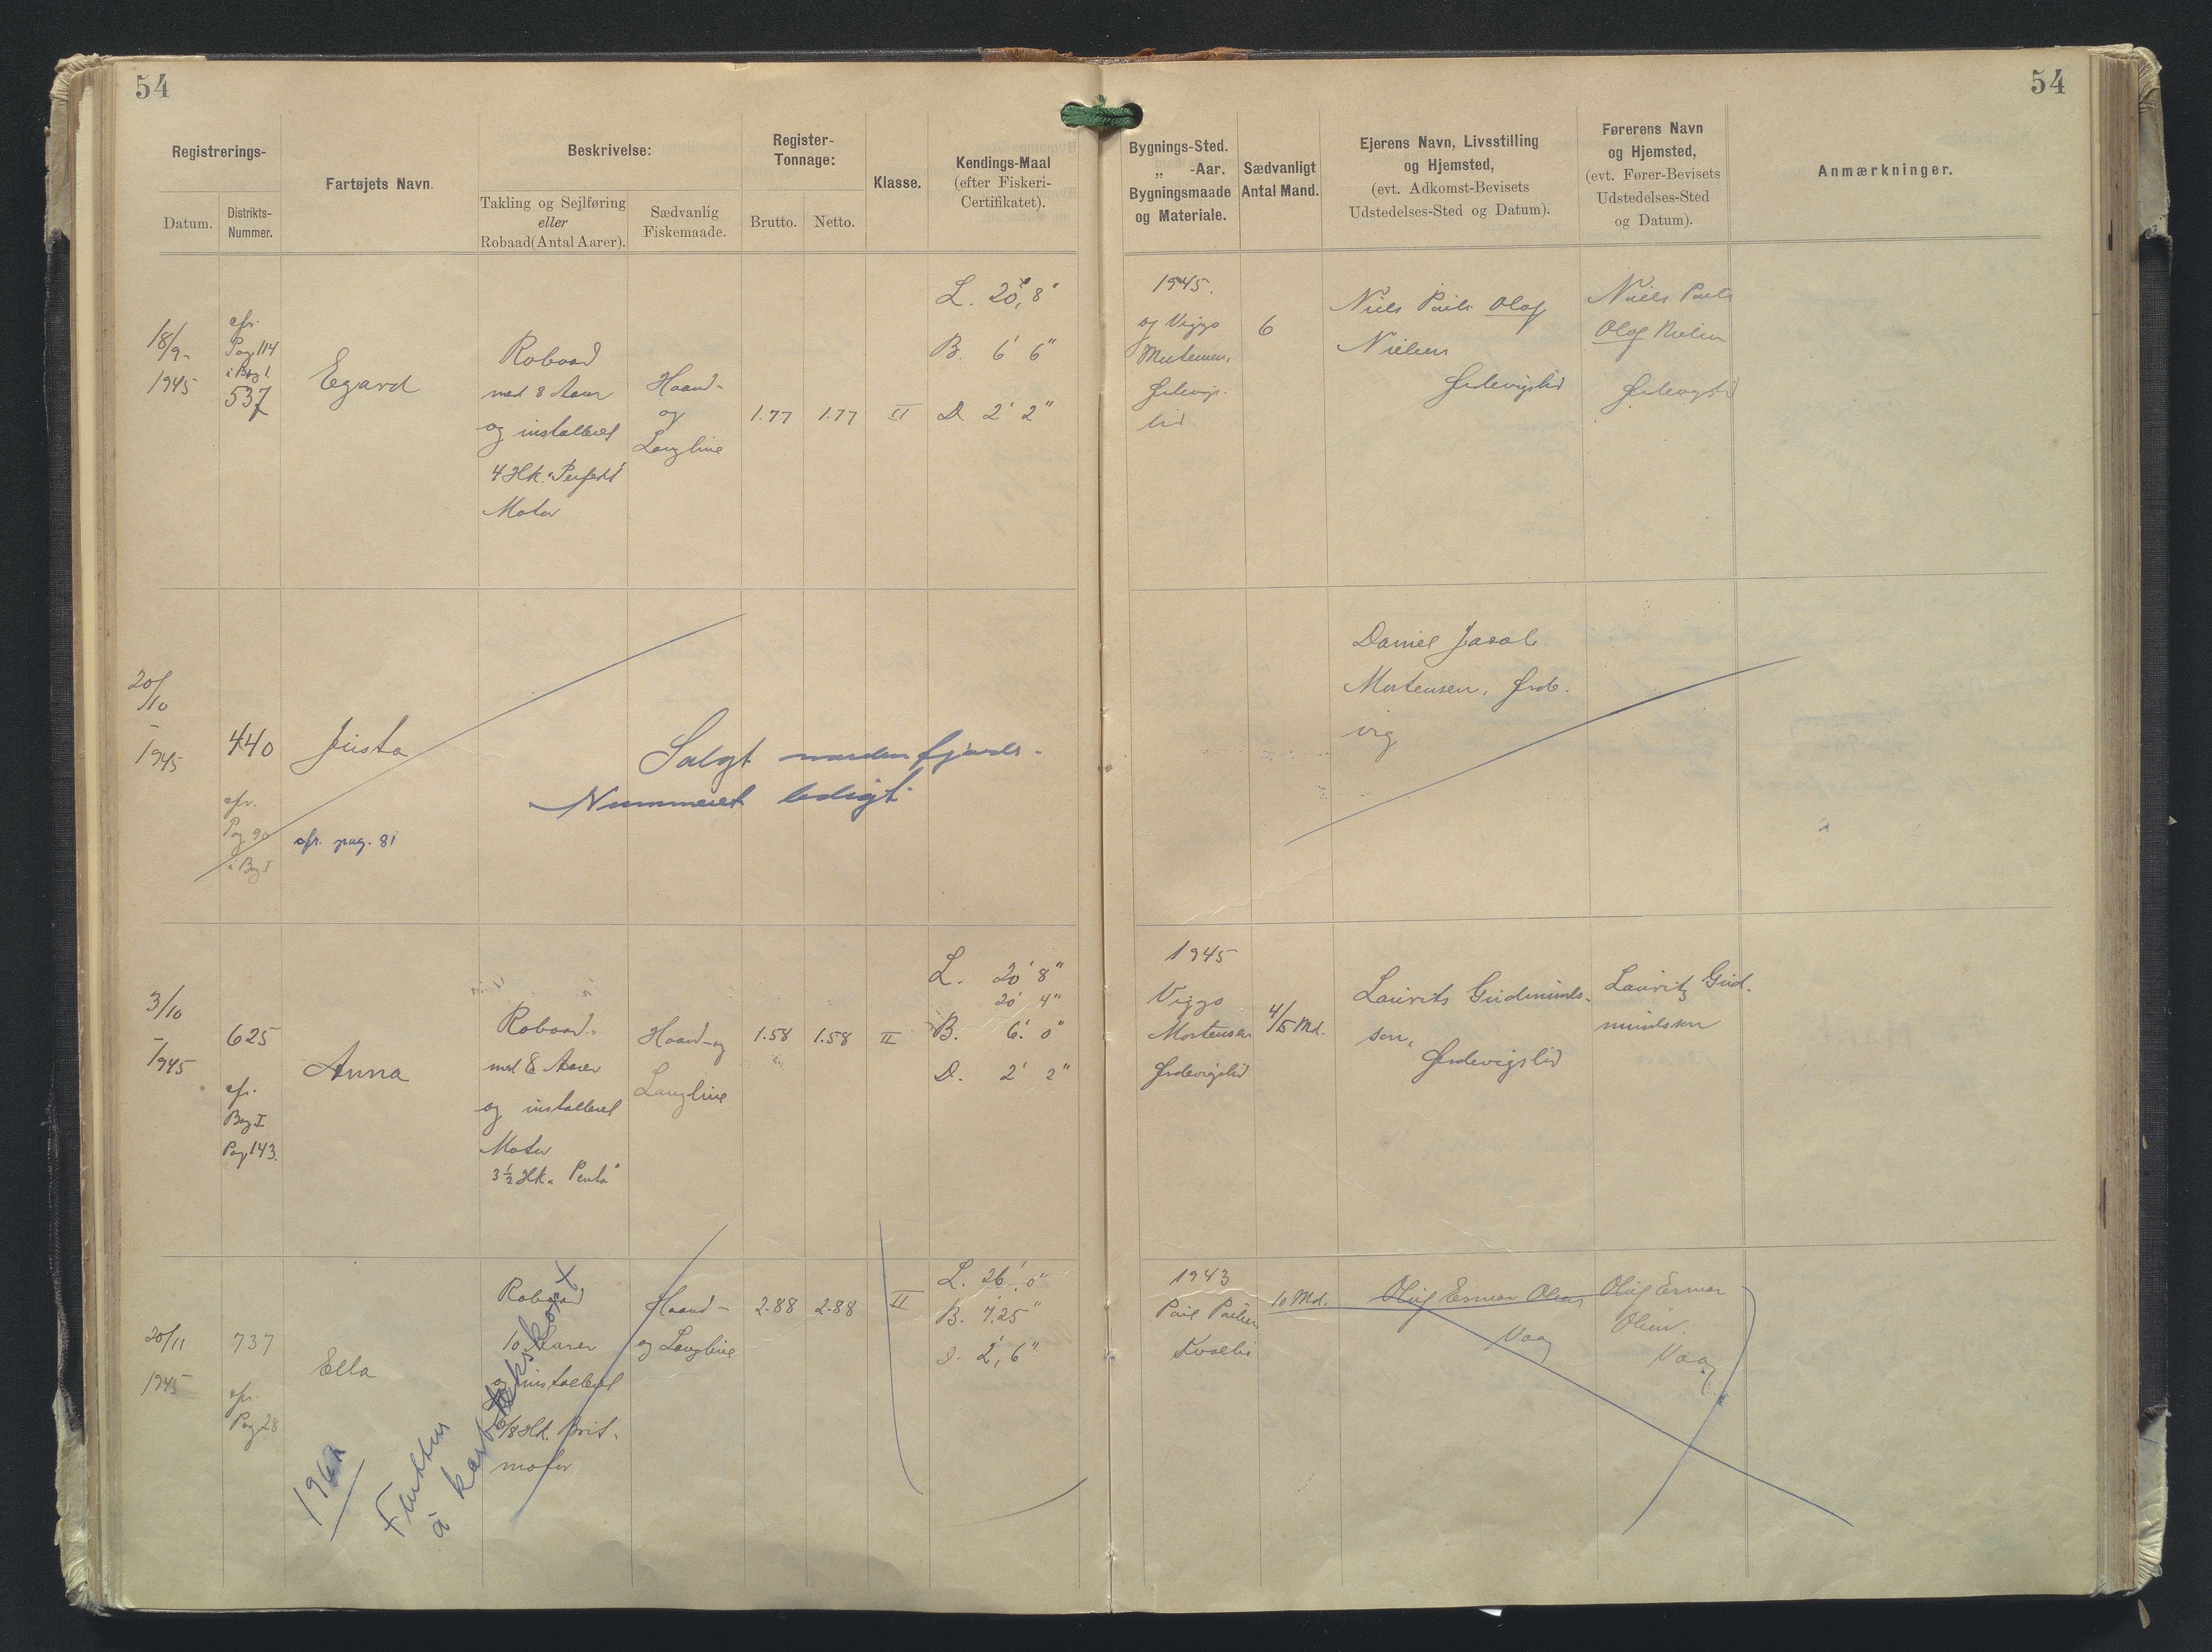 54
54
Registrerings-
Datum.
Distrikts-
Nummer.
Fartøjets Navn.
Beskrivelse:
Takling og Sejlføring
eller
Robaad (Antal Aarer).
Sædvanlig
Fiskemaade.
Register-
Tonnage:
Brutto.
Netto.
Klasse.
Kendings-Maal
(efter Fiskeri-
Certifikatet).
Bygnings-Sted.
„ -Aar.
Bygningsmaade
og Materiale.
Sædvanligt
Antal Mand.
Ejerens Navn, Livsstilling
og Hjemsted,
(evt. Adkomst-Bevisets
Udstedelses-Sted og Datum).
Førerens Navn
og Hjemsted,
(evt. Fører-Bevisets
Udstedelses-Sted
og Datum).
Anmærkninger.
18/9-
1945
cfr.
Pag 114
i Bog I.
537
Egard
Robaad
med 8 Aarer
og installeret
4 Hk. "Perfekt"
Motor
Haand-
og
Langline
1.77
1.77
II
L. 20' 8"
B. 6' 6"
D. 2' 2"
1945.
og Viggo
Mortensen,
6
Niels Pauli Olaf
Nielsen
Ørdevigslid
Niels Pauli
Olaf Nielsen
20/10
1945
440
cfr.
Pag 90
i Bog I
Justa
cfr. pag. 81
Solgt nordenfjords-
Nummeret ledigt
Daniel Jacob
Mortensen, Ørde-
vig
3/10
1945
625
cfr.
Bog I
Pag 143.
Anna
Robaad
med 8 Aarer
og installeret
Motor
3½ Hk. "Penta"
Haand- og
Langline
1.58
1.58
II
L. 20' 8"
20' 4"
B. 6' 0"
D. 2' 2"
1945
Viggo
Mortensen
Ørdevigslid
4/5 Md.
Laurits Gudmunds-
son,
Ørdevigslid
Lauritz Gud-
mundsson
20/11
1945
737
cfr.
Pag 28
Ella
Robaad
10 Aarer
og installeret
6/8 Hk.
motor
Haand-
og Langline
2.88
2.88
II
L. 26' 0"
B. 7.25"
D. 2', 6"
1943
10 Md.
Vaag
Vaag
Fluttur
á